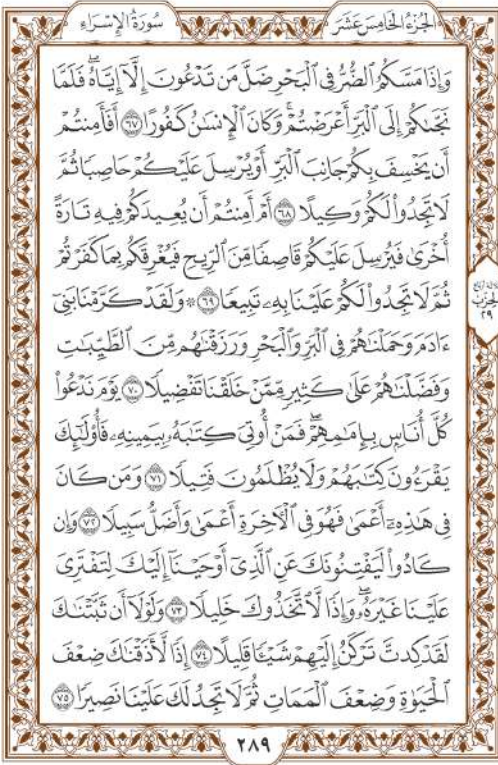 الجُزْءُ الخَامِسَ عَشَرَ سُورَةُ الإِسْرَاءِ
وَإِذَا مَسَّكُمُ ٱلضُّرُّ فِي ٱلْبَحْرِ ضَلَّ مَن تَدْعُونَ إِلَّآ إِيَّاهُۖ فَلَمَّا
نَجَّىٰكُمْ إِلَى ٱلْبَرِّ أَعْرَضْتُمْۚ وَكَانَ ٱلْإِنسَٰنُ كَفُورًا ٦٧ أَفَأَمِنتُمْ
أَن يَخْسِفَ بِكُمْ جَانِبَ ٱلْبَرِّ أَوْ يُرْسِلَ عَلَيْكُمْ حَاصِبًا ثُمَّ
لَا تَجِدُوا۟ لَكُمْ وَكِيلًا ٦٨ أَمْ أَمِنتُمْ أَن يُعِيدَكُمْ فِيهِ تَارَةً
أُخْرَىٰ فَيُرْسِلَ عَلَيْكُمْ قَاصِفًا مِّنَ ٱلرِّيحِ فَيُغْرِقَكُم بِمَا كَفَرْتُمْ
ثُمَّ لَا تَجِدُوا۟ لَكُمْ عَلَيْنَا بِهِۦ تَبِيعًا ٦٩ ۞ وَلَقَدْ كَرَّمْنَا بَنِىٓ
ءَادَمَ وَحَمَلْنَٰهُمْ فِي ٱلْبَرِّ وَٱلْبَحْرِ وَرَزَقْنَٰهُم مِّنَ ٱلطَّيِّبَٰتِ
وَفَضَّلْنَٰهُمْ عَلَىٰ كَثِيرٍ مِّمَّنْ خَلَقْنَا تَفْضِيلًا ٧٠ يَوْمَ نَدْعُوا۟
كُلَّ أُنَاسٍۭ بِإِمَٰمِهِمْۖ فَمَنْ أُوتِىَ كِتَٰبَهُۥ بِيَمِينِهِۦ فَأُو۟لَٰٓئِكَ
يَقْرَءُونَ كِتَٰبَهُمْ وَلَا يُظْلَمُونَ فَتِيلًا ٧١ وَمَن كَانَ
فِى هَٰذِهِۦٓ أَعْمَىٰ فَهُوَ فِى ٱلْأٓخِرَةِ أَعْمَىٰ وَأَضَلُّ سَبِيلًا ٧٢ وَإِن
كَادُوا۟ لَيَفْتِنُونَكَ عَنِ ٱلَّذِىٓ أَوْحَيْنَآ إِلَيْكَ لِتَفْتَرِىَ
عَلَيْنَا غَيْرَهُۥۖ وَإِذًا لَّٱتَّخَذُوكَ خَلِيلًا ٧٣ وَلَوْلَآ أَن ثَبَّتْنَٰكَ
لَقَدْ كِدتَّ تَرْكَنُ إِلَيْهِمْ شَيْـًٔا قَلِيلًا ٧٤ إِذًا لَّأَذَقْنَٰكَ ضِعْفَ
ٱلْحَيَوٰةِ وَضِعْفَ ٱلْمَمَاتِ ثُمَّ لَا تَجِدُ لَكَ عَلَيْنَا نَصِيرًا ٧٥
٢٨٩